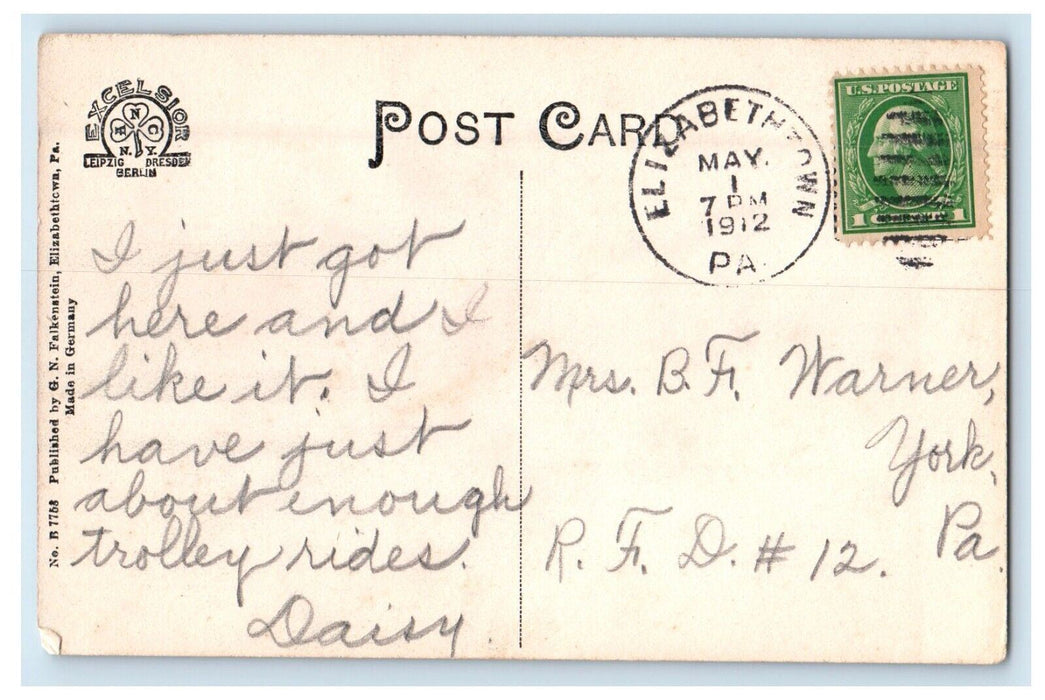 EXCELSIOR
ANC
N.Y.
LEIPZIG DRESDEN
BERLIN
POST CARD
ELIZABETHTOWN
MAY.
1
7 PM
1912
PA.
U.S. POSTAGE
1 1
No. B 7758 Published by G. N. Falkenstein, Elizabethtown, Pa.
Made in Germany
I just got
here and I
like it. I
have just
about enough
trolley rides.
Daisy.
Mrs. B. F. Warner,
York,
Pa.
R. F. D. # 12.